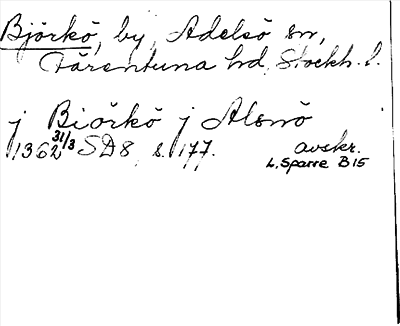 Björkö, by, Adelsö sn,
Färentuna hd, Stockh. l.
j Biörkö j Alsnö
1362 31/3 SD 8, s. 177. avskr.
L. Sparre B 15